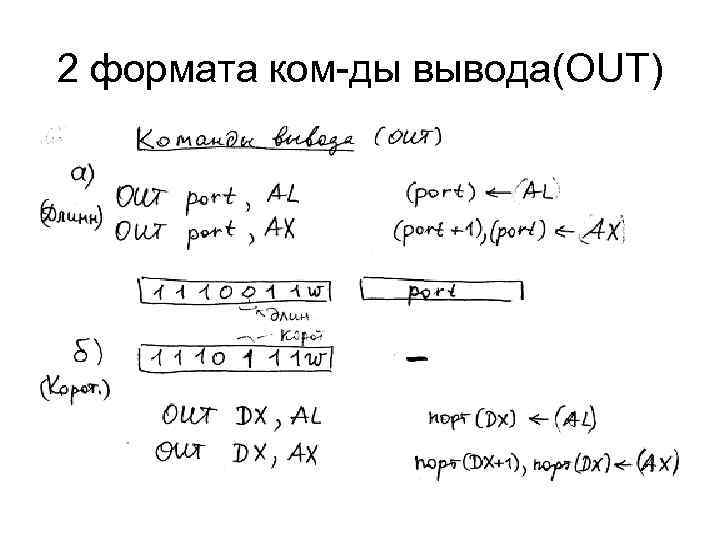 2 формата ком-ды вывода(OUT)
Команды вывода (OUT)
а)
OUT port, AL (port) ← (AL)
(Длинн)
OUT port, AX (port+1),(port) ← (AX)
1 1 1 0 0 1 1 w port
длин
корот
б) 1 1 1 0 1 1 1 w –
(Корот.)
OUT DX, AL порт(DX) ← (AL)
OUT DX, AX порт(DX+1), порт(DX) ← (AX)